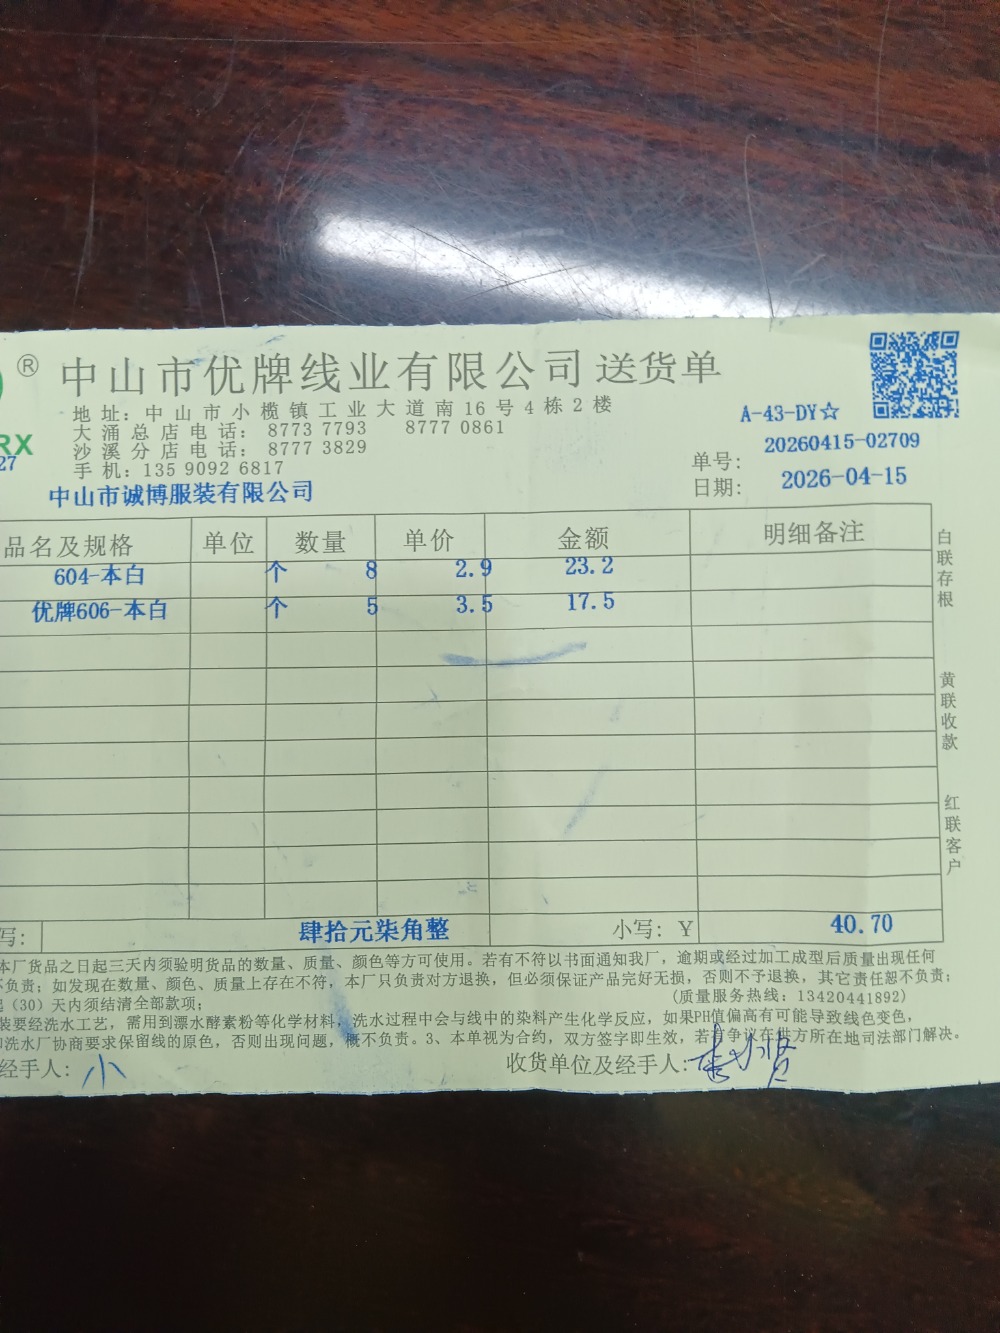 ® 中山市优牌线业有限公司 送货单
RX
地址：中山市小榄镇工业大道南16号4栋2楼
大涌总店电话： 8773 7793 8777 0861
沙溪分店电话： 8777 3829
手机：135 9092 6817
27
A-43-DY☆
单号： 20260415-02709
日期： 2026-04-15
中山市诚博服装有限公司
品名及规格 单位 数量 单价 金额 明细备注
604-本白 个 8 2.9 23.2
优牌606-本白 个 5 3.5 17.5
写： 肆拾元柒角整 小写：￥ 40.70
白联存根
黄联收款
红联客户
本厂货品之日起三天内须验明货品的数量、质量、颜色等方可使用。若有不符以书面通知我厂，逾期或经过加工成型后质量出现任何
不负责；如发现在数量、颜色、质量上存在不符，本厂只负责对方退换，但必须保证产品完好无损，否则不予退换，其它责任恕不负责；
（30）天内须结清全部款项； （质量服务热线：13420441892）
装要经洗水工艺，需用到漂水酵素粉等化学材料，洗水过程中会与线中的染料产生化学反应，如果PH值偏高有可能导致线色变色，
洗水厂协商要求保留线的原色，否则出现问题，概不负责。3、本单视为合约，双方签字即生效，若有争议在供方所在地司法部门解决。
经手人：小 收货单位及经手人：